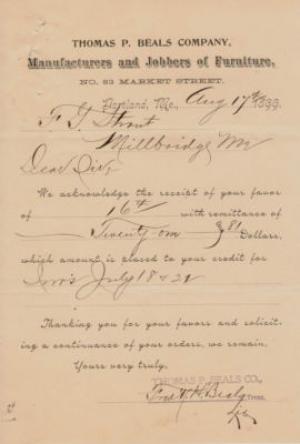 THOMAS P. BEALS COMPANY,
Manufacturers and Jobbers of Furniture,
NO. 83 MARKET STREET.
Portland, Me., Aug 17th 1899.
F. G. Strout
Millbridge Me
Dear Sir,
We acknowledge the receipt of your favor
of 16th with remittance of
Twenty one 81 Dollars,
which amount is placed to your credit for
Invs July 18 & 21
Thanking you for your favors and solicit-
ing a continuance of your orders, we remain,
Yours very truly,
THOMAS P. BEALS CO.,
Beals Treas.